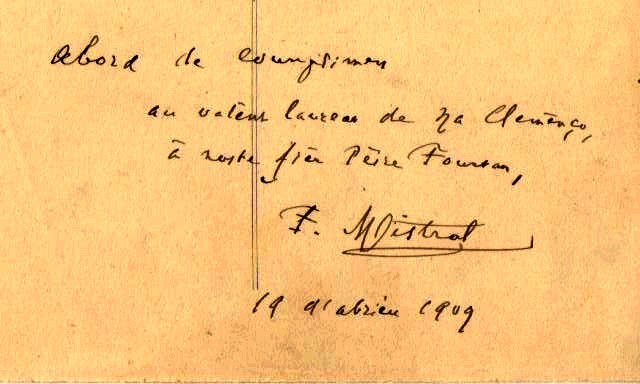 abord de coumplimen
au valènt laureat de Na Clemènço,
à noste fièr Pèire Fourtan,
F. Mistral
19 d'abriéu 1909